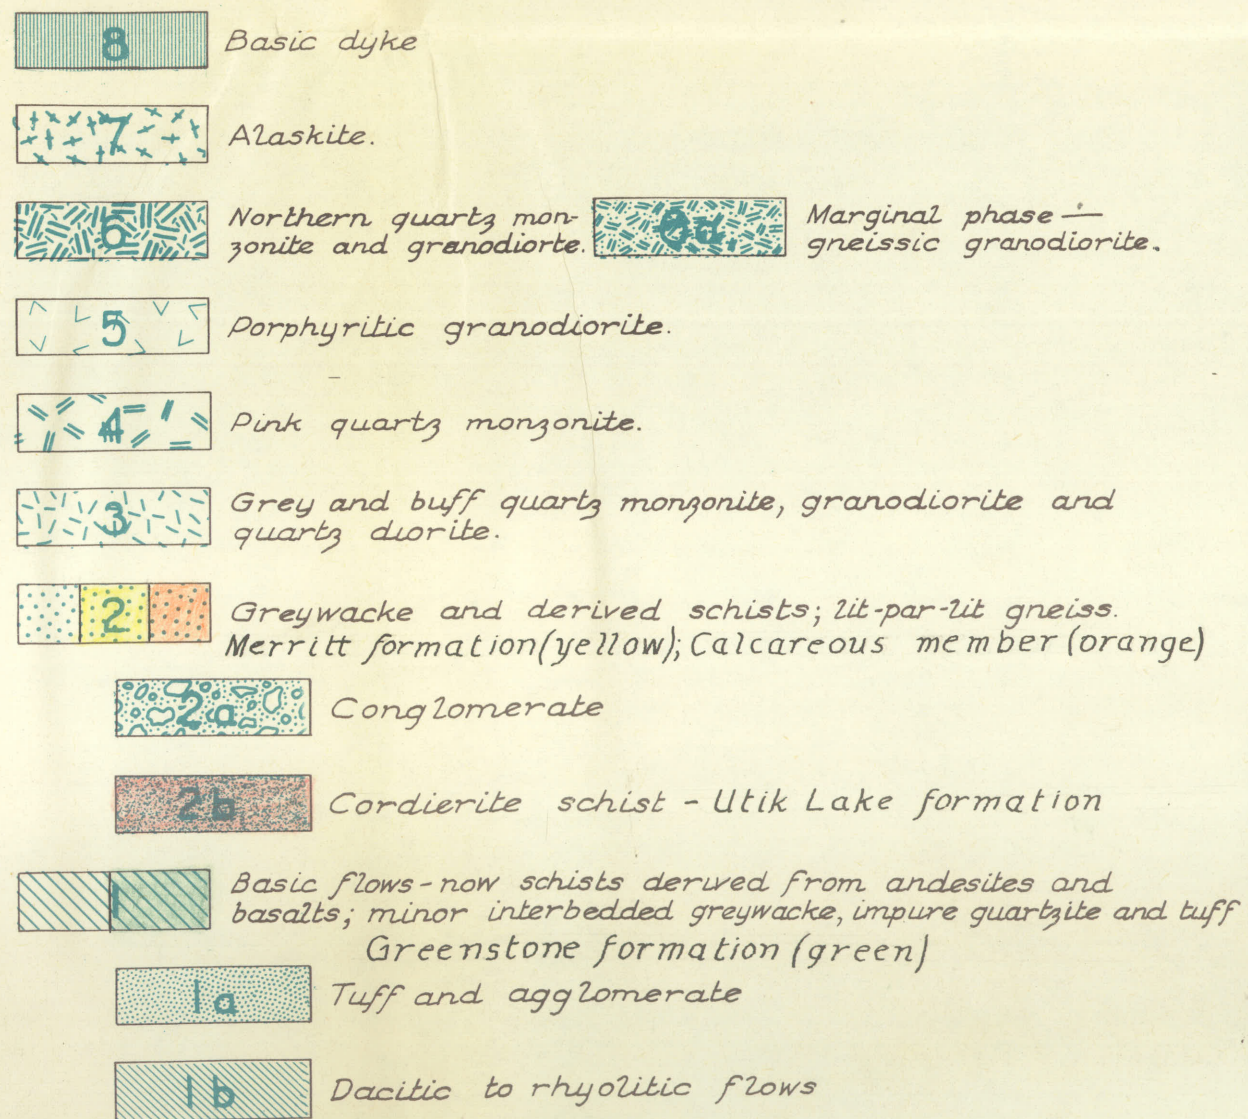 8 Basic dyke
7 Alaskite.
6 Northern quartz mon-
zonite and granodiorte.
6a Marginal phase —
gneissic granodiorite.
5 Porphyritic granodiorite.
4 Pink quartz monzonite.
3 Grey and buff quartz monzonite, granodiorite and
quartz diorite.
2 Greywacke and derived schists; lit-par-lit gneiss.
Merritt formation (yellow); Calcareous member (orange)
2a Conglomerate
2b Cordierite schist - Utik Lake formation
1 Basic flows - now schists derived from andesites and
basalts; minor interbedded greywacke, impure quartzite and tuff
Greenstone formation (green)
1a Tuff and agglomerate
1b Dacitic to rhyolitic flows